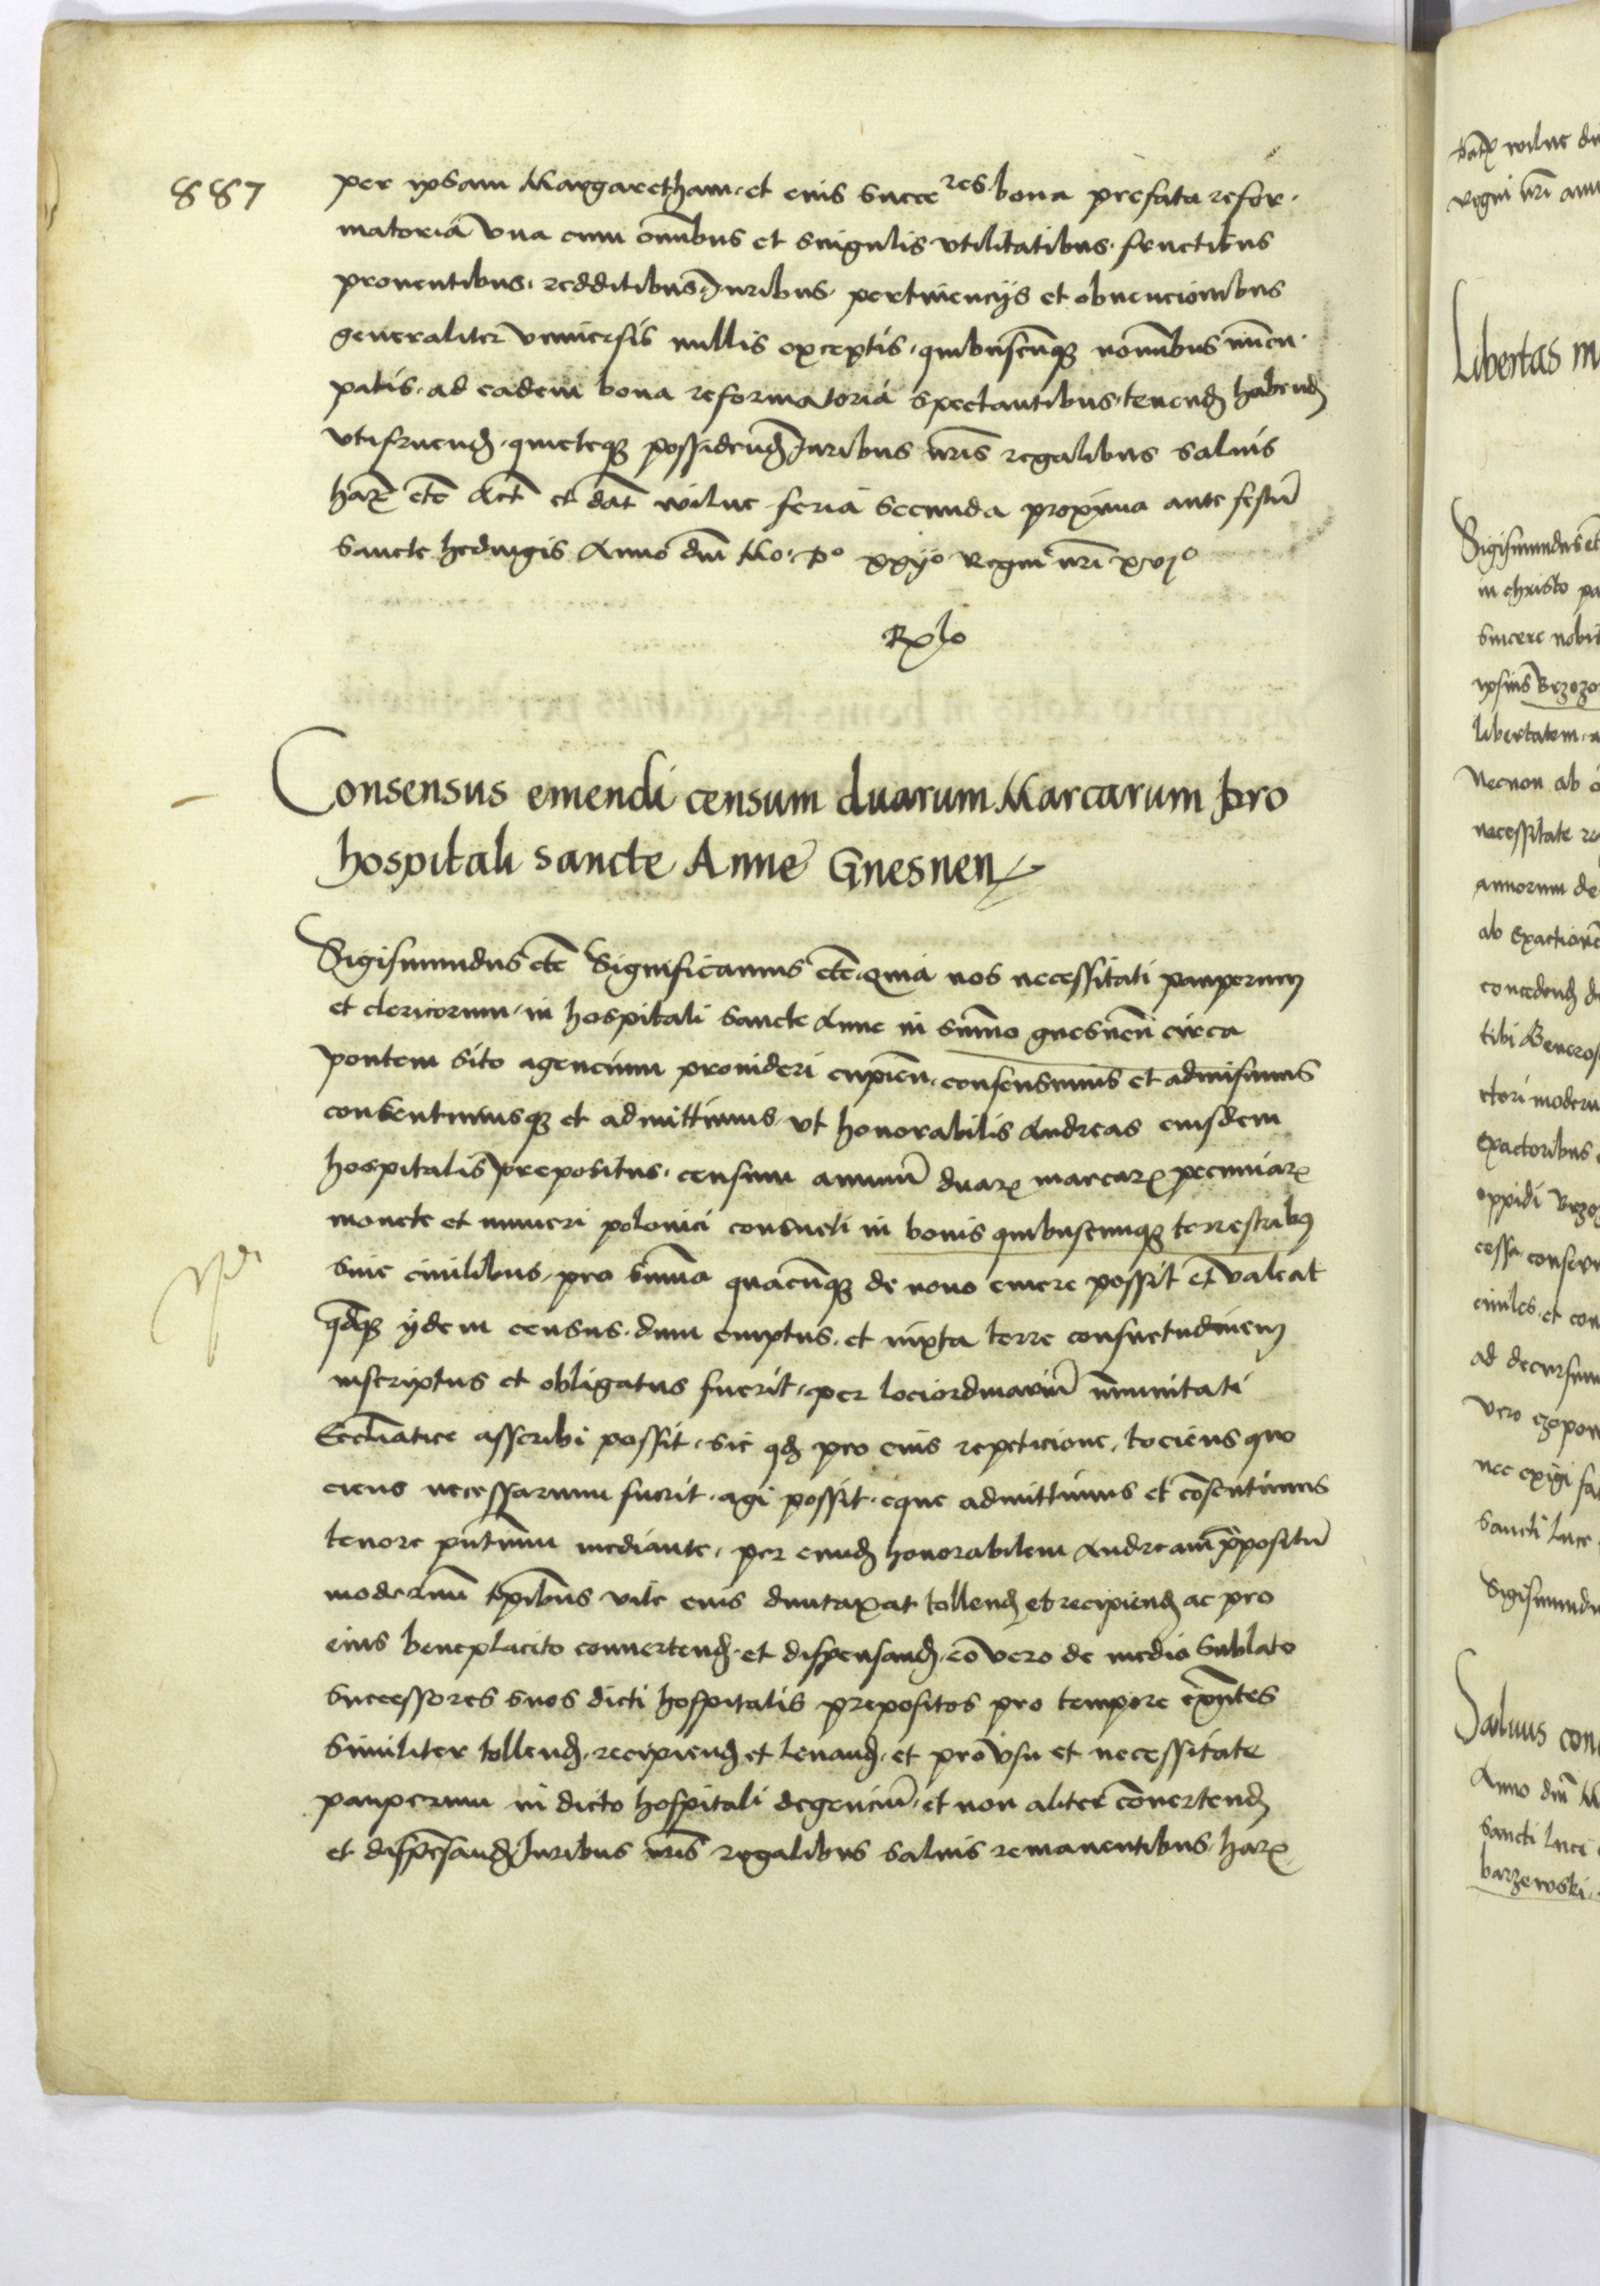 887
per ipsam Margaretham et eius succe res bona prefata refor
matoria vna cum omībus et singulis vtilitatibus fructibus
prouentibus redditibus Juribus pertinencijs et obuencionibus
generaliter vniuersis nullis exceptis quibuscūq3 nomībus nūcu
patis ad eadem bona reformatoria spectantibus tenend habend
vtifruend quieteq3 possidend Juribus nr̄is regalibus saluis
har etc̄ Act̄ et dat̄ wilne feria secunda proxima ante festū
sancte hedwigis Anno dnī Mo. do xxijo Regni nrī xvjo
Rxlo
Consensus emendi censum duarum Marcarum pro
hospitali sancte Anne Gnesnen
Sigismundus etc̄ Significamus etc̄ Quia nos necessitati pauperum
et clericorum in hospitali sancte Anne in sum̄o gnesnen̄ circa
pontem sito agencium prouideri cupien̄ consensimus et admisimus
consentimusq3 et admittimus vt honorabilis Andreas eiusdem
hospitalis prepositus censum annuū duar marcar pecuniar
monete et numeri polonici consueti in bonis quibuscunq3 terrestribus
siue ciuilibus pro sum̄a quacūq3 de nouo emere possit et valeat
qdq3 ijdem census dum emptus et iuxta terre consuetudinem
inscriptus et obligatus fuerit per lociordinariū īmunitati
Eccl̄iatice asscribi possit sic qd pro eius repeticione tociens quo
ciens necessarium fuerit agi possit eque admittimus et cōsentimus
tenore pn̄tium mediante per eund honorabilem Andream p̄positū
modernū tp̄ibus vite eius duntaxat tollend et recipiend ac pro
eius beneplacito conuertend et dispensand eo vero de medio sublato
successores suos dicti hospitalis prepositos pro tempore exn̄tes
similiter tollend recipiend et leuand et pro vsu et necessitate
pauperum in dicto hospitali degenciū et non aliter cōuertend
et dispēsand Juribus nr̄is regalibus saluis remanentibus har
Libertas
Sigismundus et
in christo
sincere
ipsius
libertatem
Necnon ab
necessitate
annorum de
ab Exactione
concedend
tibi Generos
ctori modern
exactoribus
oppidi
cessa
ciuiles et con
ad decursum
vero
nec exigi
sancti luce
Sigismundu
Saluus con
Anno dnī M
sancti luce
barzewski